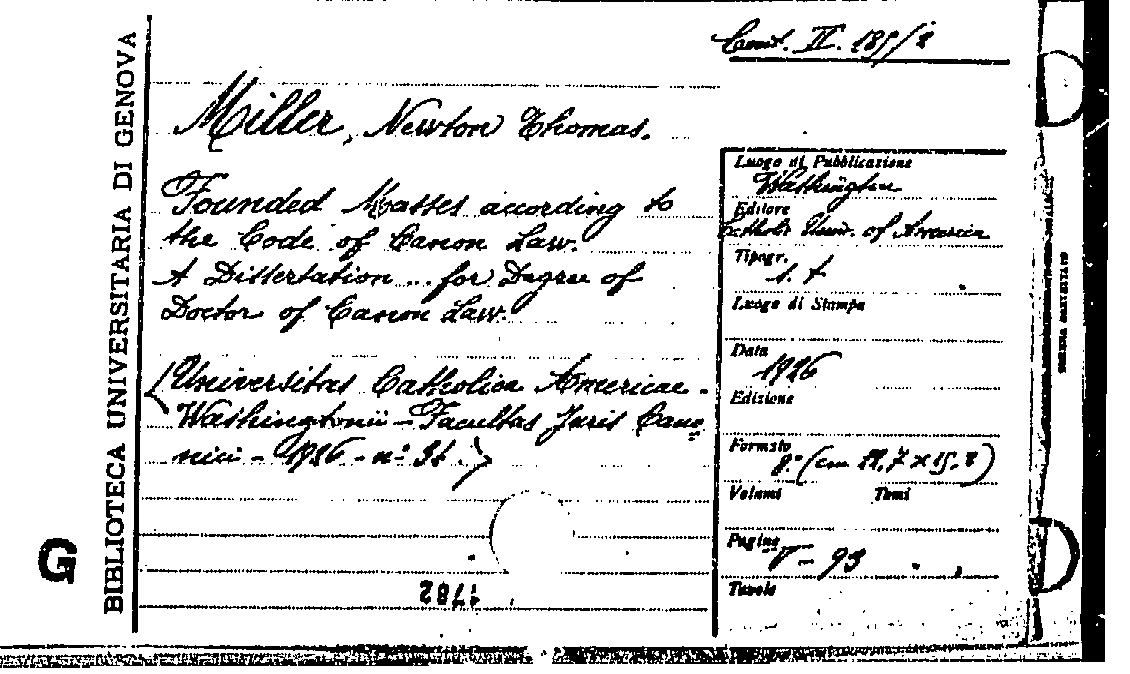 BIBLIOTECA UNIVERSITARIA DI GENOVA
G
Miller, Newton Thomas.
Founded Masses according to
the Code of Canon Law.
A Dissertation ... for Degree of
Doctor of Canon Law.
(Universitas Catholica Americae -
Washingtonii - Facultas Juris Cano
nici - 1926 - n°
1782
Luogo di Pubblicazione
Washington
Editore
Catholic Univ. of America
Tipogr.
s. t
Luogo di Stampa
Data
1926
Edizione
Formato
8° (cm
Volumi Tomi
Pagine
V - 93
Tavole